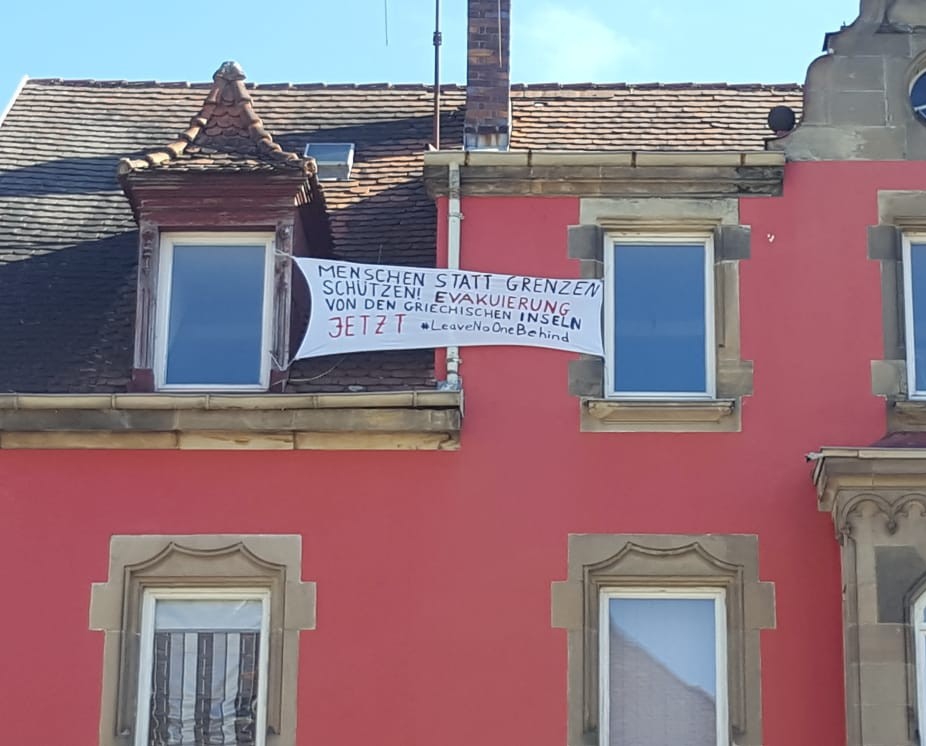 MENSCHEN STATT GRENZEN
SCHÜTZEN! EVAKUIERUNG
VON DEN GRIECHISCHEN INSELN
JETZT #LeaveNoOneBehind